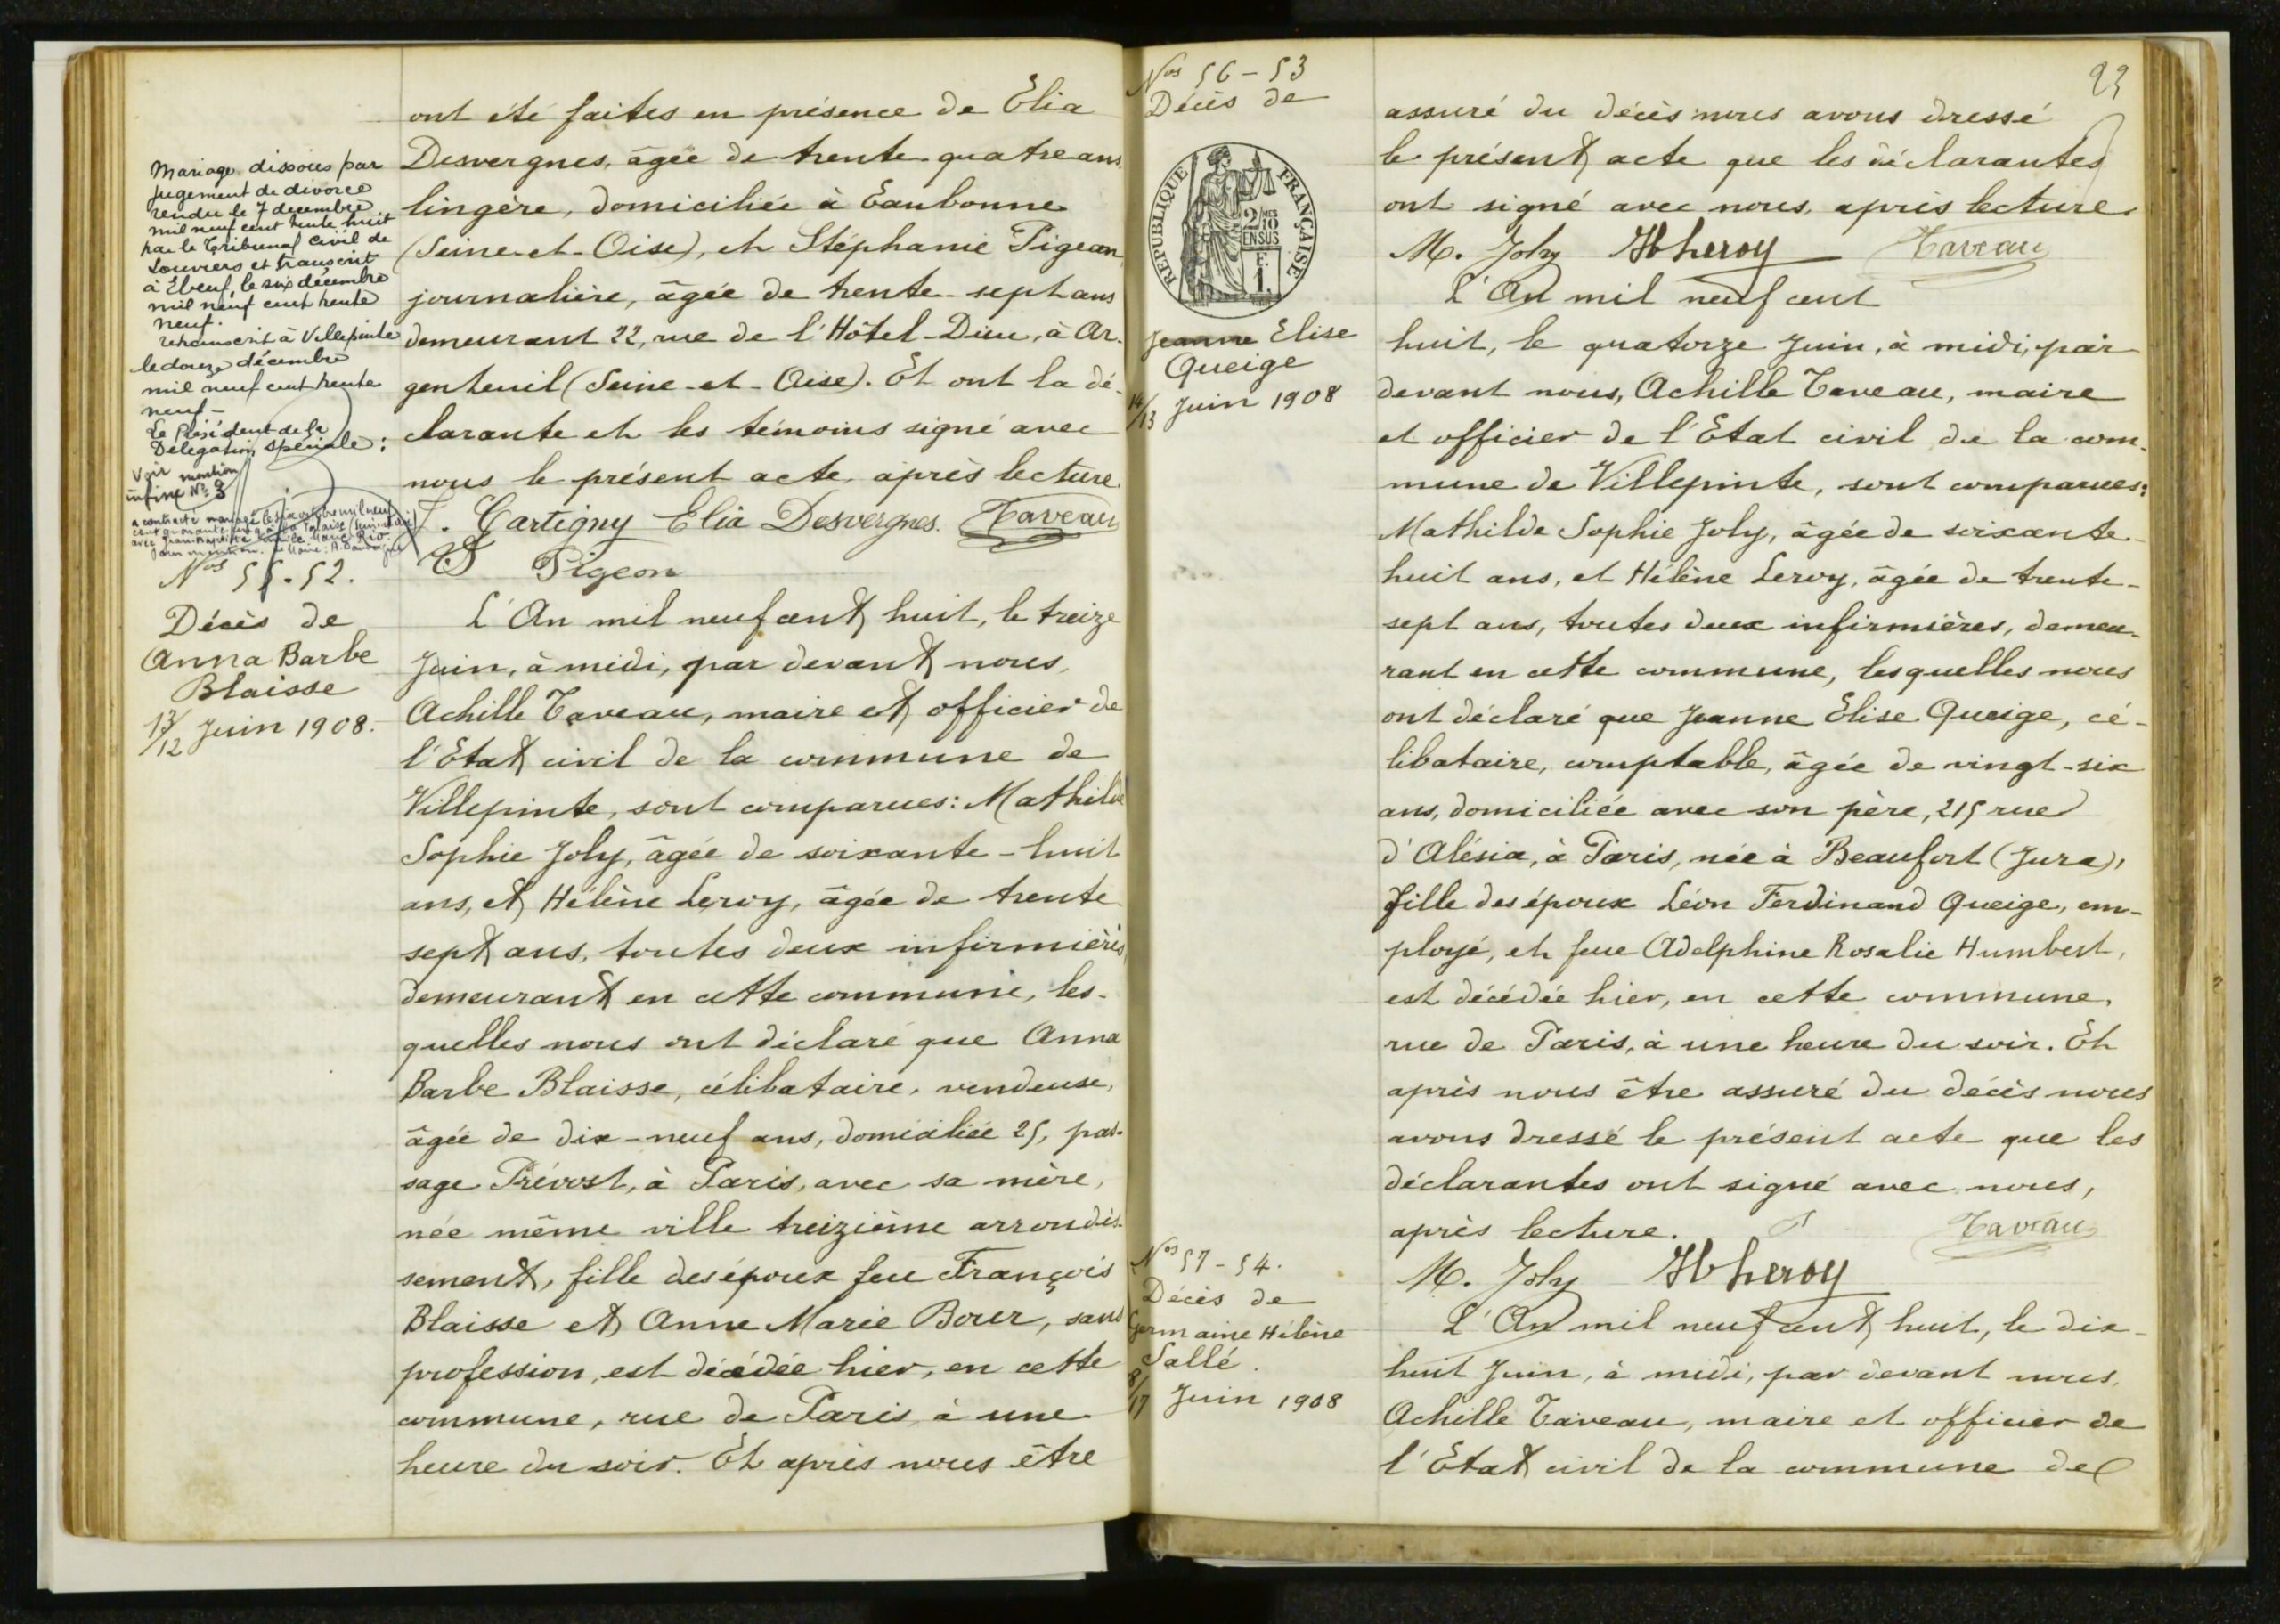 Mariage dissous par
jugement de divorce
rendu le 7 decembre
mil neuf cent trente huit
par le Tribunal civil de
Louviers et transcrit
à Elbeuf, le six décembre
mil neuf cent trente
neuf.
retranscrit à Villepinte
le douze décembre
mil neuf cent trente
neuf -
Le Président de la
Délégation spéciale :
Voir mention
infine No 3
a contracté mariage
avec Jean Baptiste Marie Rio
Nos 55-52.
Décès de
Anna Barbe
Blaisse
13/12 Juin 1908.
ont été faites en présence de Elia
Desvergnes, âgée de trente quatre ans
lingère, domiciliée à Eaubonne
(Seine-et-Oise), et Stéphanie Pigeon,
journalière, âgée de trente-sept ans
demeurant 22, rue de l'Hôtel-Dieu, à Ar-
genteuil (Seine-et-Oise). Et ont la dé-
clarante et les témoins signé avec
nous le présent acte, après lecture.
J. Cartigny Elia Desvergnes. Taveau
S Pigeon
L'An mil neuf cent huit, le treize
Juin, à midi, par devant nous,
Achille Taveau, maire et officier de
l'Etat civil de la commune de
Villepinte, sont comparues: Mathilde
Sophie Joly, âgée de soixante-huit
ans, et Hélène Leroy, âgée de trente
sept ans, toutes deux infirmières
demeurant en cette commune, les-
quelles nous ont déclaré que Anna
Barbe Blaisse, célibataire, vendeuse,
âgée de dix-neuf ans, domiciliée 25, pas-
sage Prévost, à Paris, avec sa mère,
née même ville treizième arrondis-
sement, fille des époux feu François
Blaisse et Anne Marie Bourr, sans
profession, est décédée hier, en cette
commune, rue de Paris, à une
heure du soir. Et après nous être
Nos 56-53
Décès de
RÉPUBLIQUE FRANÇAISE
2/10 MES
EN SUS
F.
1.
Jeanne Elise
Queige
14/13 Juin 1908
Nos 57-54.
Décès de
Germaine Hélène
Sallé.
8/17 Juin 1908
23
assuré du décès nous avons dressé
le présent acte que les déclarantes
ont signé avec nous, après lecture.
M. Joly H Leroy Taveau
L'An mil neuf cent
huit, le quatorze Juin, à midi, par
devant nous, Achille Taveau, maire
et officier de l'Etat civil de la com-
mune de Villepinte, sont comparues:
Mathilde Sophie Joly, âgée de soixante-
huit ans, et Hélène Leroy, âgée de trente-
sept ans, toutes deux infirmières, demeu-
rant en cette commune, lesquelles nous
ont déclaré que Jeanne Elise Queige, cé-
libataire, comptable, âgée de vingt-six
ans, domiciliée avec son père, 215 rue
d'Alésia, à Paris, née à Beaufort (Jura),
fille des époux Léon Ferdinand Queige, em-
ployé, et feue Adelphine Rosalie Humbert,
est décédée hier, en cette commune,
rue de Paris, à une heure du soir. Et
après nous être assuré du décès nous
avons dressé le présent acte que les
déclarantes ont signé avec nous,
après lecture. Taveau
M. Joly H Leroy
L'An mil neuf cent huit, le dix-
huit Juin, à midi, par devant nous,
Achille Taveau, maire et officier de
l'Etat civil de la commune de